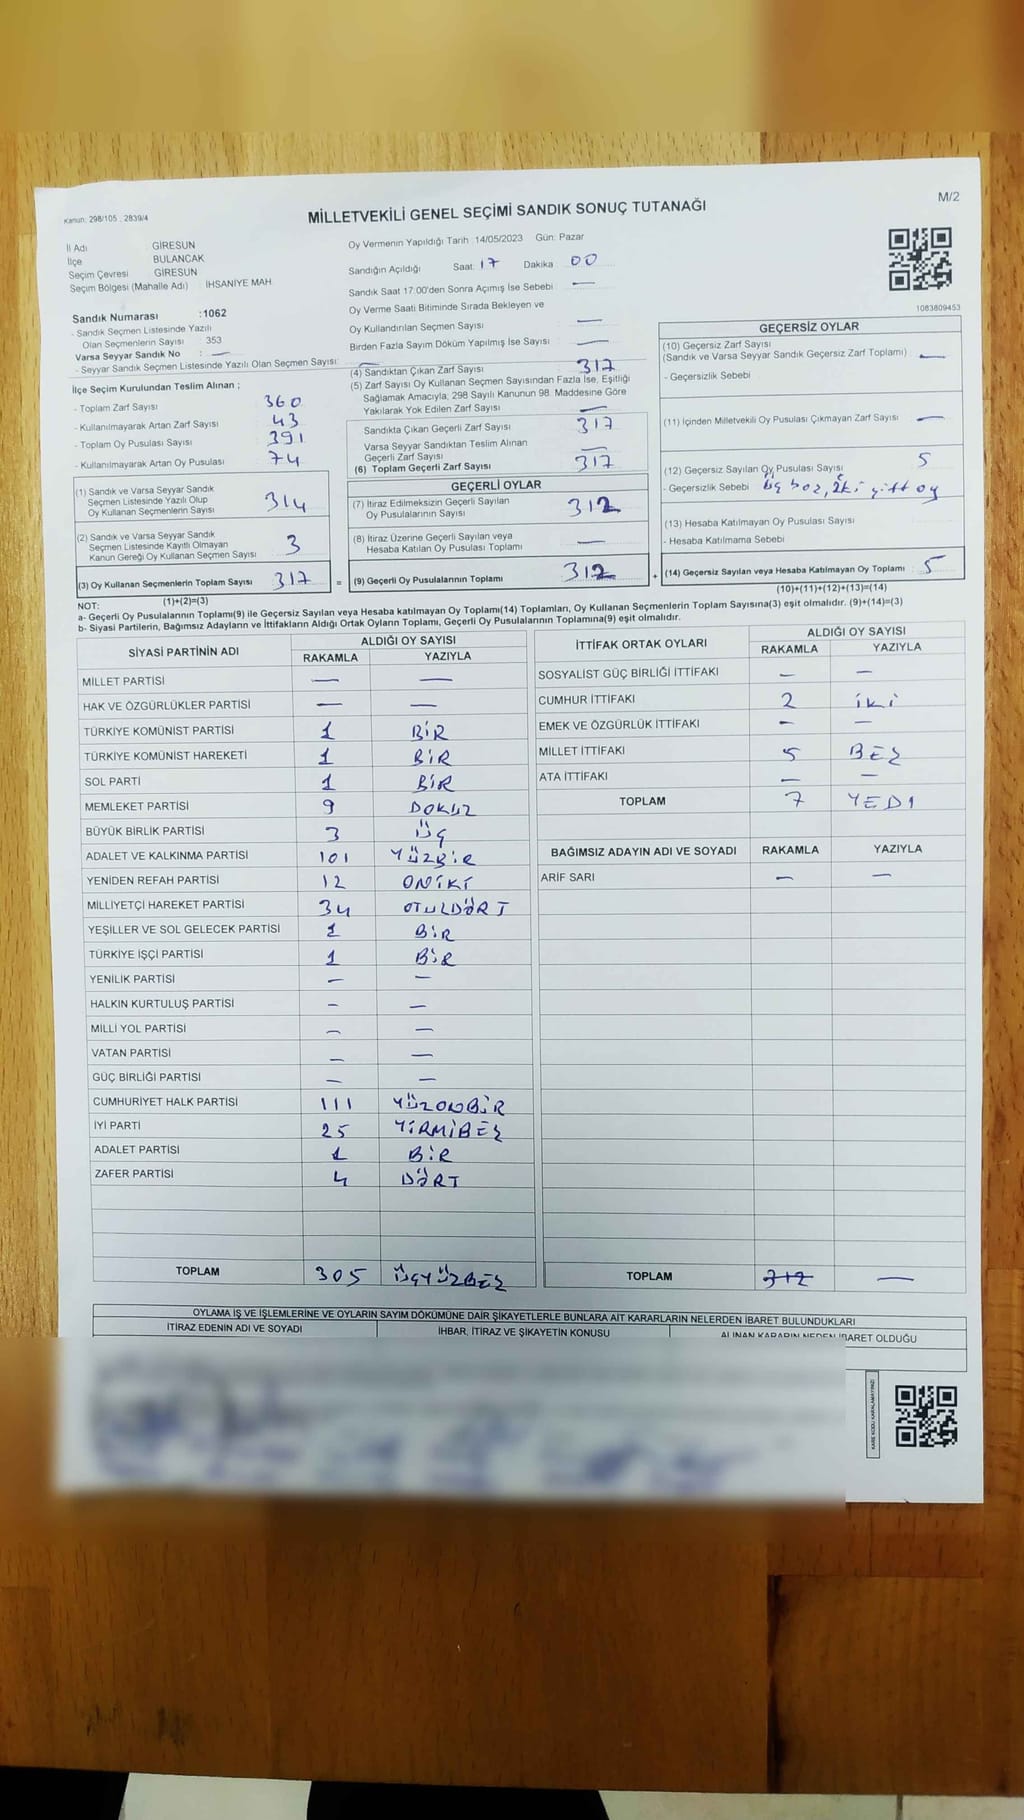 Kanun: 298/105 , 2839/4
MİLLETVEKİLİ GENEL SEÇİMİ SANDIK SONUÇ TUTANAĞI
M/2
İl Adı GİRESUN
İlçe BULANCAK
Seçim Çevresi GİRESUN
Seçim Bölgesi (Mahalle Adı) İHSANİYE MAH.
Sandık Numarası :1062
- Sandık Seçmen Listesinde Yazılı
Olan Seçmenlerin Sayısı : 353
Varsa Seyyar Sandık No : —
- Seyyar Sandık Seçmen Listesinde Yazılı Olan Seçmen Sayısı: —
Oy Vermenin Yapıldığı Tarih 14/05/2023 Gün: Pazar
Sandığın Açıldığı Saat: 17 Dakika 00
Sandık Saat 17:00'den Sonra Açımış İse Sebebi : —
Oy Verme Saati Bitiminde Sırada Bekleyen ve
Oy Kullandırılan Seçmen Sayısı : —
Birden Fazla Sayım Döküm Yapılmış İse Sayısı : —
1083809453
İlçe Seçim Kurulundan Teslim Alınan ;
- Toplam Zarf Sayısı 360
- Kullanılmayarak Artan Zarf Sayısı 43
- Toplam Oy Pusulası Sayısı 391
- Kullanılmayarak Artan Oy Pusulası 74
(1) Sandık ve Varsa Seyyar Sandık
Seçmen Listesinde Yazılı Olup
Oy Kullanan Seçmenlerin Sayısı 314
(2) Sandık ve Varsa Seyyar Sandık
Seçmen Listesinde Kayıtlı Olmayan
Kanun Gereği Oy Kullanan Seçmen Sayısı 3
(3) Oy Kullanan Seçmenlerin Toplam Sayısı 317 =
(1)+(2)=(3)
(4) Sandıktan Çıkan Zarf Sayısı 317
(5) Zarf Sayısı Oy Kullanan Seçmen Sayısından Fazla İse, Eşitliği
Sağlamak Amacıyla, 298 Sayılı Kanunun 98. Maddesine Göre
Yakılarak Yok Edilen Zarf Sayısı —
Sandıkta Çıkan Geçerli Zarf Sayısı 317
Varsa Seyyar Sandıktan Teslim Alınan
Geçerli Zarf Sayısı —
(6) Toplam Geçerli Zarf Sayısı 317
GEÇERLİ OYLAR
(7) İtiraz Edilmeksizin Geçerli Sayılan
Oy Pusulalarının Sayısı 312
(8) İtiraz Üzerine Geçerli Sayılan veya
Hesaba Katılan Oy Pusulası Toplamı —
(9) Geçerli Oy Pusulalarının Toplamı 312 +
GEÇERSİZ OYLAR
(10) Geçersiz Zarf Sayısı
(Sandık ve Varsa Seyyar Sandık Geçersiz Zarf Toplamı) : —
- Geçersizlik Sebebi
(11) İçinden Milletvekili Oy Pusulası Çıkmayan Zarf Sayısı —
(12) Geçersiz Sayılan Oy Pusulası Sayısı 5
- Geçersizlik Sebebi üç boz, iki çift oy
(13) Hesaba Katılmayan Oy Pusulası Sayısı
- Hesaba Katılmama Sebebi
(14) Geçersiz Sayılan veya Hesaba Katılmayan Oy Toplamı : 5
(10)+(11)+(12)+(13)=(14)
NOT:
a- Geçerli Oy Pusulalarının Toplamı(9) ile Geçersiz Sayılan veya Hesaba katılmayan Oy Toplamı(14) Toplamları, Oy Kullanan Seçmenlerin Toplam Sayısına(3) eşit olmalıdır. (9)+(14)=(3)
b- Siyasi Partilerin, Bağımsız Adayların ve İttifakların Aldığı Ortak Oyların Toplamı, Geçerli Oy Pusulalarının Toplamına(9) eşit olmalıdır.
SİYASİ PARTİNİN ADI ALDIĞI OY SAYISI
RAKAMLA YAZIYLA
MİLLET PARTİSİ — —
HAK VE ÖZGÜRLÜKLER PARTİSİ — —
TÜRKİYE KOMÜNİST PARTİSİ 1 BİR
TÜRKİYE KOMÜNİST HAREKETİ 1 BİR
SOL PARTİ 1 BİR
MEMLEKET PARTİSİ 9 DOKUZ
BÜYÜK BİRLİK PARTİSİ 3 ÜÇ
ADALET VE KALKINMA PARTİSİ 101 YÜZBİR
YENİDEN REFAH PARTİSİ 12 ONİKİ
MİLLİYETÇİ HAREKET PARTİSİ 34 OTUZDÖRT
YEŞİLLER VE SOL GELECEK PARTİSİ 1 BİR
TÜRKİYE İŞÇİ PARTİSİ 1 BİR
YENİLİK PARTİSİ — —
HALKIN KURTULUŞ PARTİSİ — —
MİLLİ YOL PARTİSİ — —
VATAN PARTİSİ — —
GÜÇ BİRLİĞİ PARTİSİ — —
CUMHURİYET HALK PARTİSİ 111 YÜZONBİR
İYİ PARTİ 25 YİRMİBEŞ
ADALET PARTİSİ 1 BİR
ZAFER PARTİSİ 4 DÖRT
TOPLAM 305 ÜÇYÜZBEŞ
İTTİFAK ORTAK OYLARI ALDIĞI OY SAYISI
RAKAMLA YAZIYLA
SOSYALİST GÜÇ BİRLİĞİ İTTİFAKI — —
CUMHUR İTTİFAKI 2 İKİ
EMEK VE ÖZGÜRLÜK İTTİFAKI — —
MİLLET İTTİFAKI 5 BEŞ
ATA İTTİFAKI — —
TOPLAM 7 YEDİ
BAĞIMSIZ ADAYIN ADI VE SOYADI RAKAMLA YAZIYLA
ARİF SARI — —
TOPLAM 312 —
OYLAMA İŞ VE İŞLEMLERİNE VE OYLARIN SAYIM DÖKÜMÜNE DAİR ŞİKAYETLERLE BUNLARA AİT KARARLARIN NELERDEN İBARET BULUNDUKLARI
İTİRAZ EDENİN ADI VE SOYADI İHBAR, İTİRAZ VE ŞİKAYETİN KONUSU ALINAN KARARIN NEDEN İBARET OLDUĞU
KARE KODU KARALAMAYINIZ!